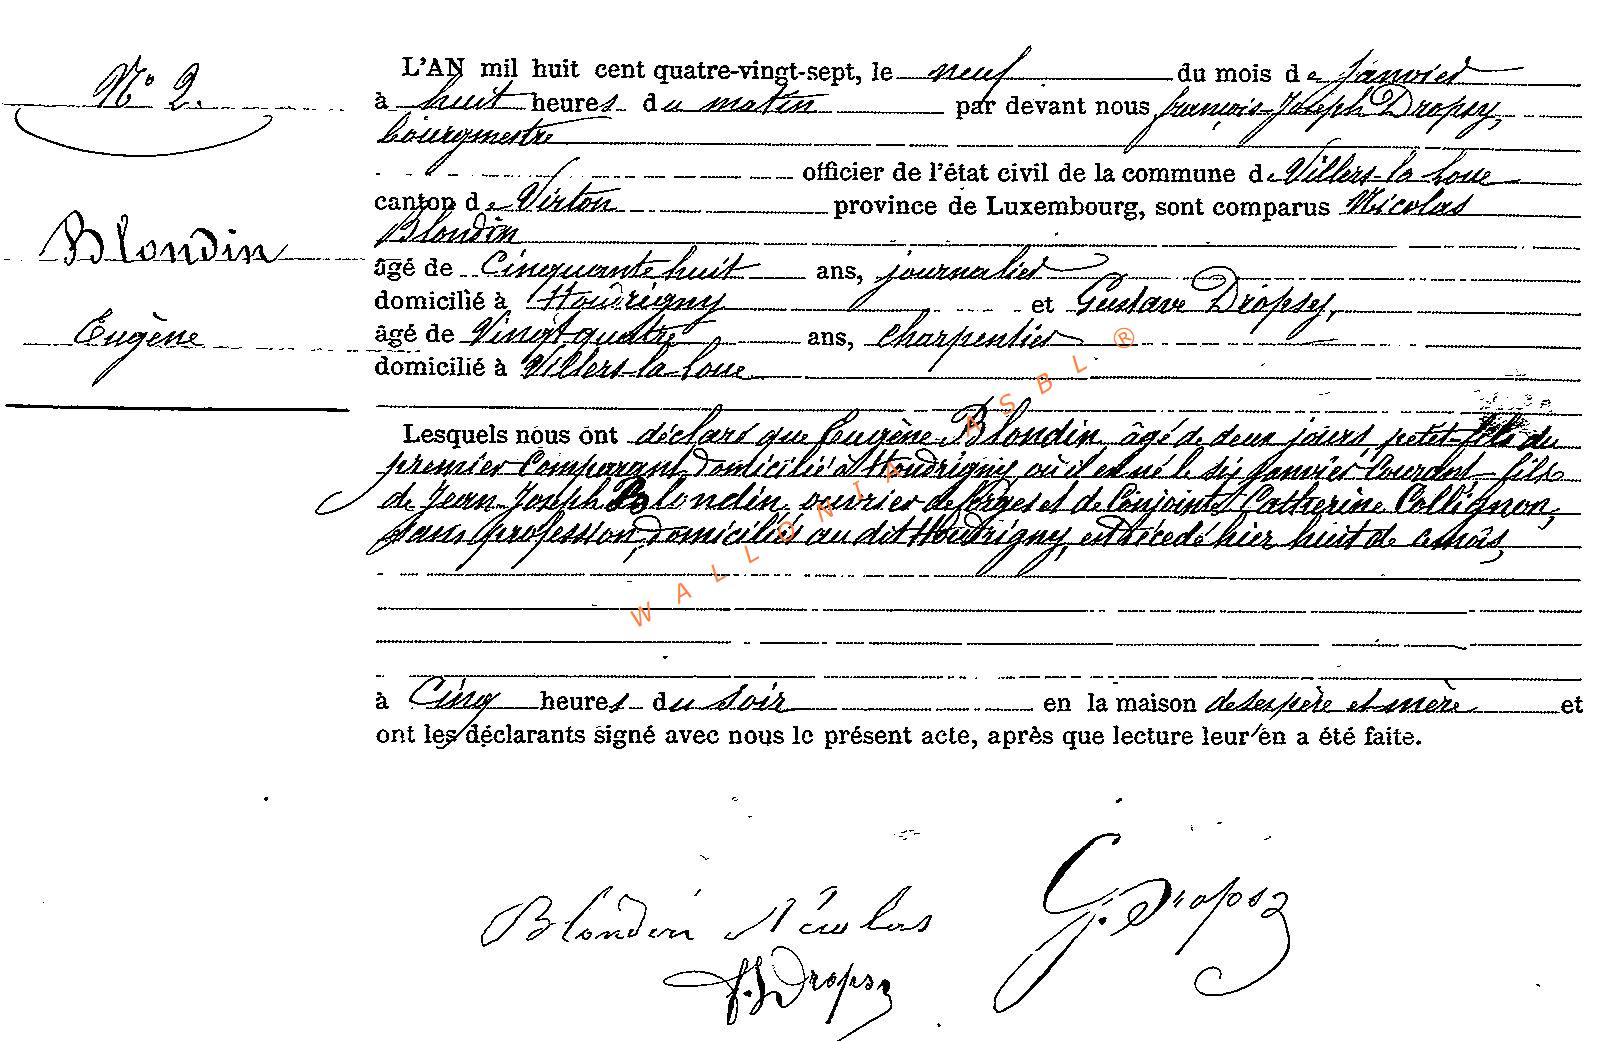 N° 2.
Blondin
Eugène
L'AN mil huit cent quatre-vingt-sept, le neuf du mois de janvier
à huit heures du matin par devant nous françois-Joseph Dropsy,
bourgmestre
officier de l'état civil de la commune de Villers-la-Loue
canton de Virton province de Luxembourg, sont comparus Nicolas
Blondin
âgé de Cinquante huit ans, journalier
domicilié à Houdrigny et Gustave Dropsy,
âgé de Vingt quatre ans, charpentier
domicilié à Villers-la-Loue
Lesquels nous ont déclaré que Eugène Blondin, âgé de deux jours, petit-fils du
premier Comparant, domicilié à Houdrigny, où il est né le six janvier Courant, fils
de Jean-Joseph Blondin, ouvrier de forges et de Conjointe Catherine Collignon,
sans profession, domiciliés au dit Houdrigny, est décédé hier huit de ce mois,
à Cinq heures du soir en la maison de ses père et mère et
ont les déclarants signé avec nous le présent acte, après que lecture leur en a été faite.
Blondin Nicolas
G. Dropsy
F. J Dropsy
WALLONIA ASBL ®